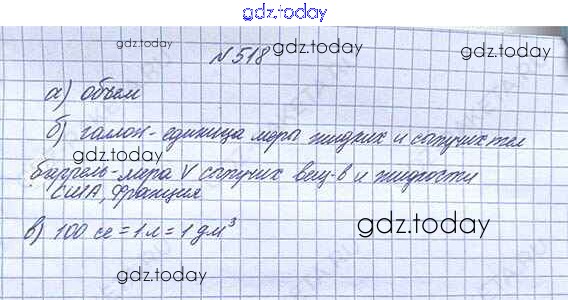 gdz.today
№518 gdz.today gdz.today
gdz.today
а) объем
б) галон - единица меры жидких и сыпучих тел
gdz.today
баррель - мера V сыпучих вещ-в и жидкости
США, Франция
gdz.today
в) 100 се = 1 л = 1 дм³
gdz.today